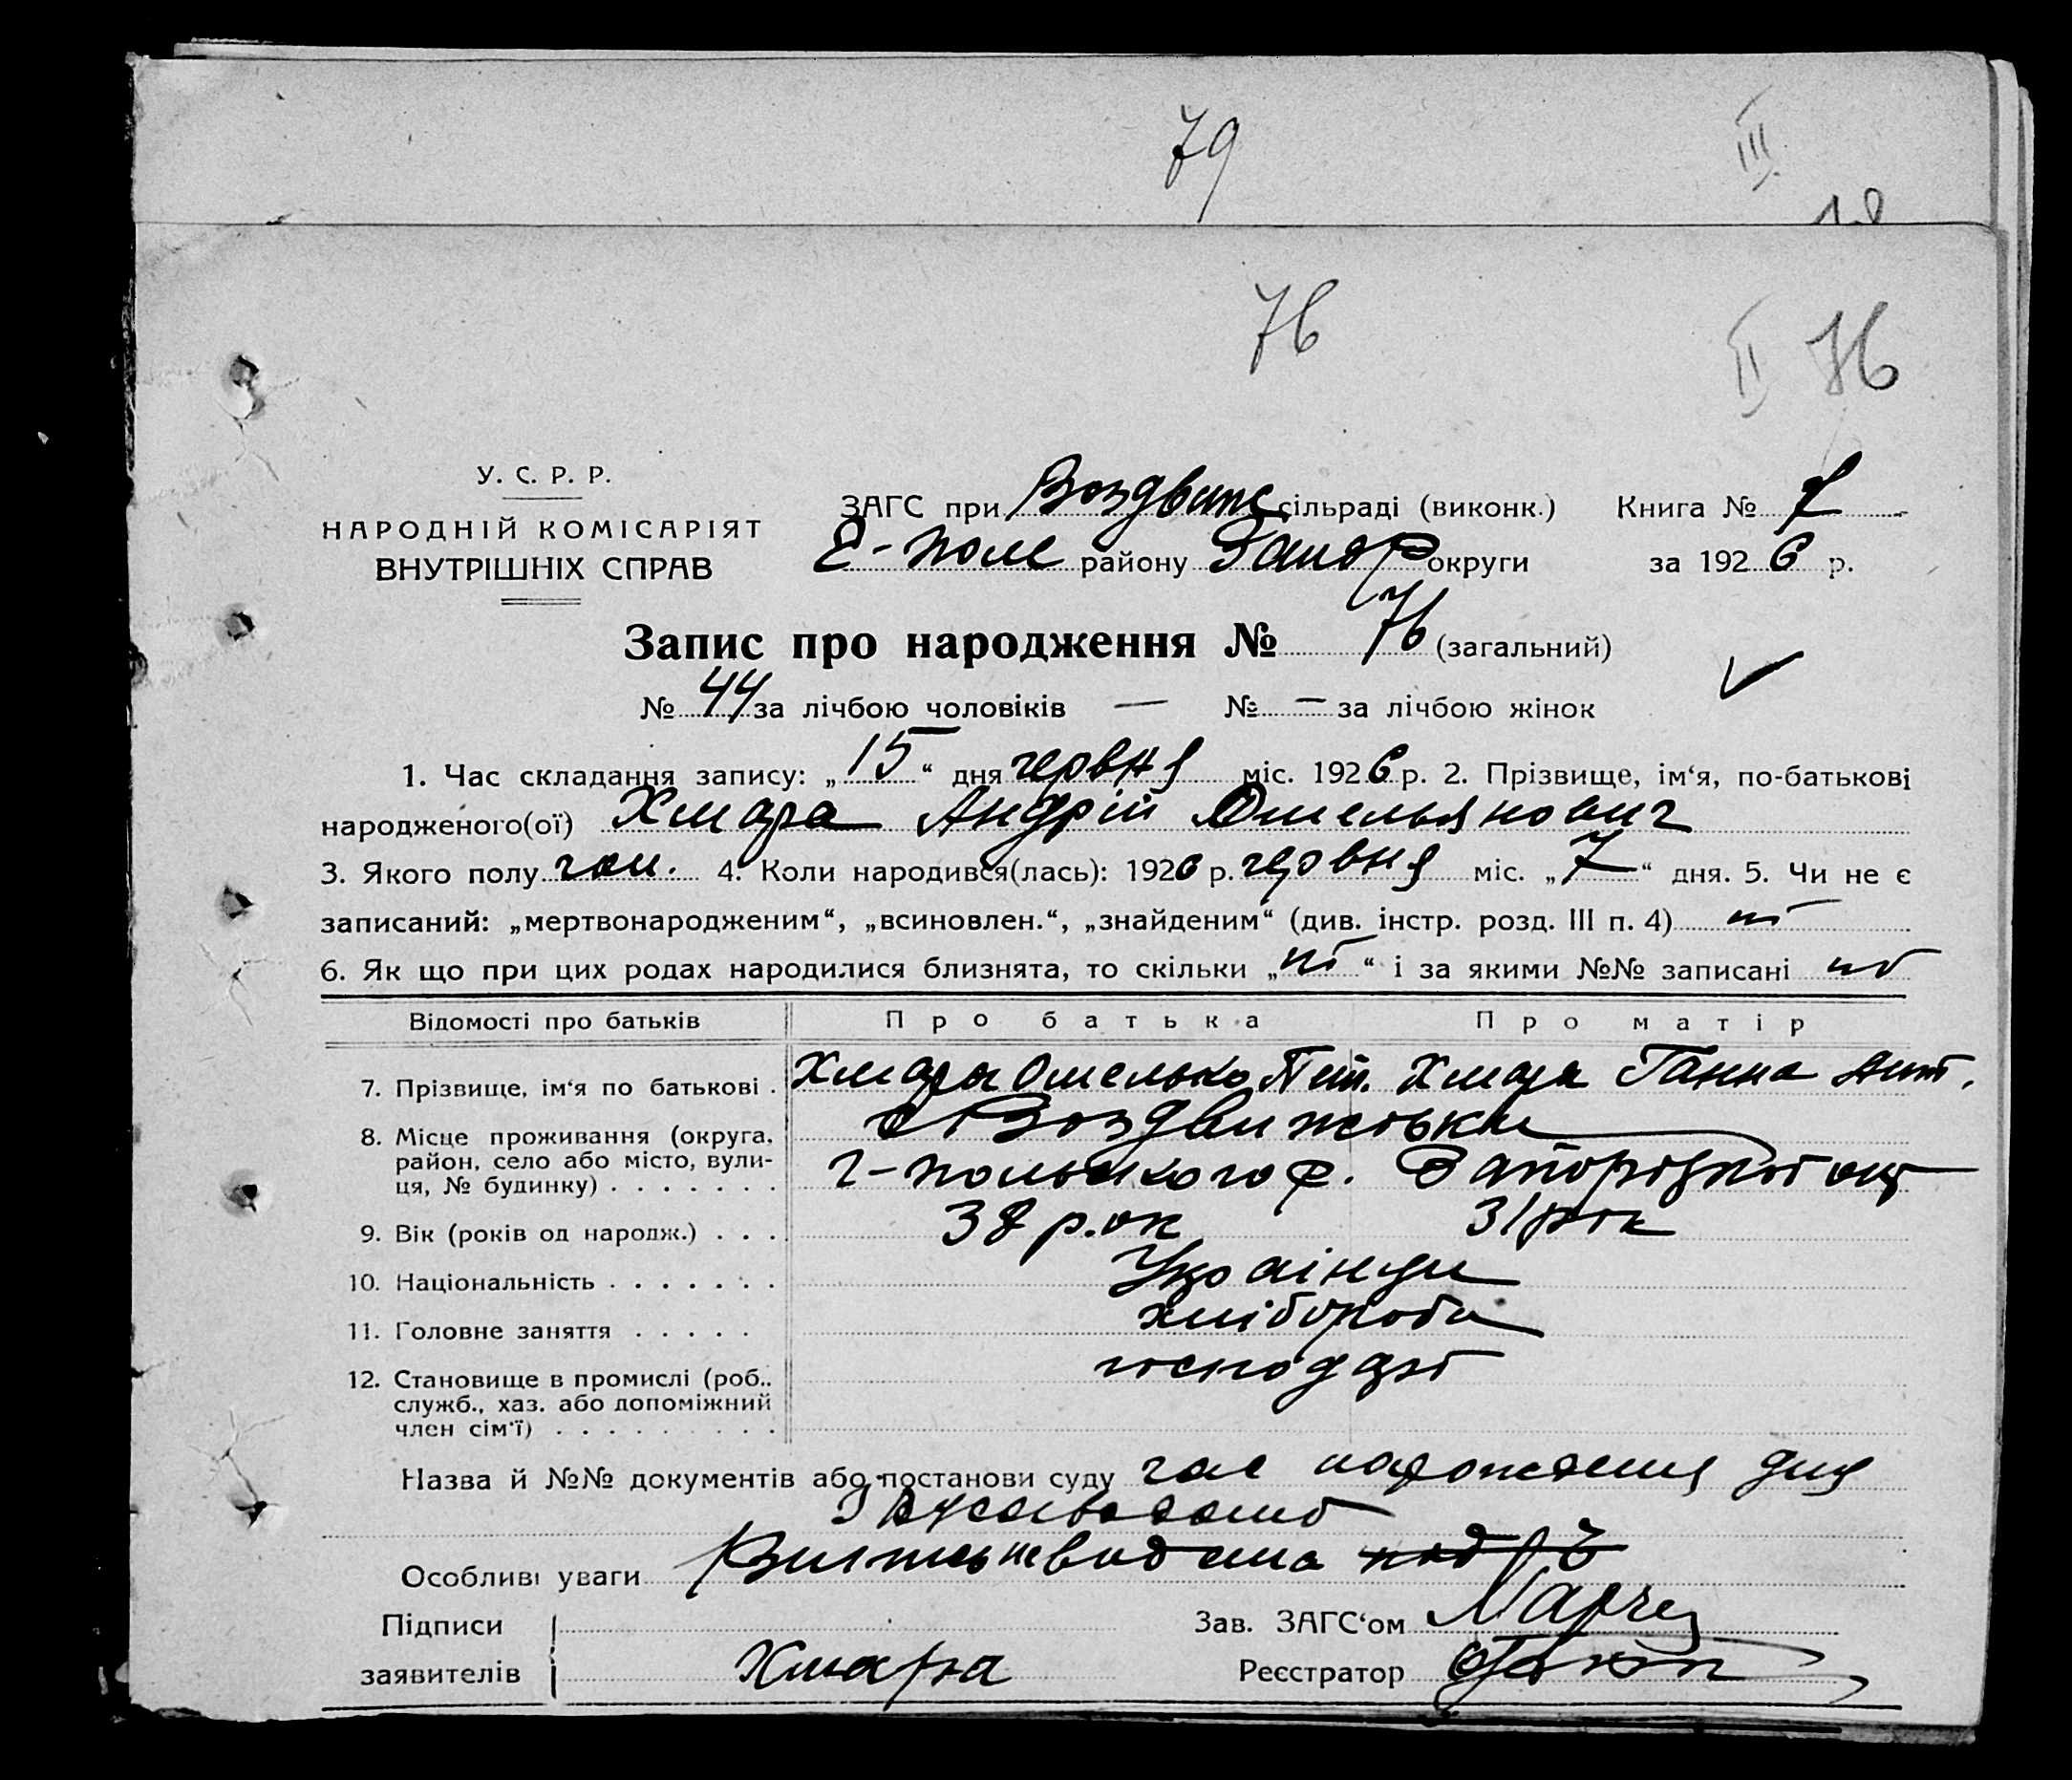 79
III
76
II 76
У. С. Р. Р.
НАРОДНІЙ КОМІСАРІЯТ
ВНУТРІШНІХ СПРАВ
ЗАГС при Воздвиж сільраді (виконк.) Книга №
Г-Поле району Запор округи за 1926 р.
Запис про народження № 76 (загальний)
№ 44 за лічбою чоловіків — № — за лічбою жінок
1. Час складання запису: „15“ дня червня міс. 1926 р. 2. Прізвище, ім‘я, по-батькові
народженого(ої) Хмара Андрій Омельянович
3. Якого полу чол. 4. Коли народився(лась): 1926 р. червня міс. „7“ дня. 5. Чи не є
записаний: „мертвонародженим“, „всиновлен.“, „знайденим“ (див. інстр. розд. III п. 4) ні
6. Як що при цих родах народилися близнята, то скільки „ні“ і за якими №№ записані ні
Відомості про батьків Про батька Про матір
7. Прізвище, ім‘я по батькові . Хмара Омелько Хмара Ганна Ант.
8. Місце проживання (округа, Воздвижівка
район, село або місто, вули-
ця, № будинку) . . . . . . . Г-польського р. Запорізької окр
9. Вік (років од народж.) . . . 38 рок 31 рік
10. Національність . . . . . . . Українці
11. Головне заняття . . . . . хлібороби
12. Становище в промислі (роб.. господарі
служб., хаз. або допоміжний
член сім‘ї) . . . . . . . . .
Назва й №№ документів або постанови суду час народження
Особливі уваги Виписъ видана
Підписи Зав. ЗАГС‘ом
заявителів Хмара Реєстратор